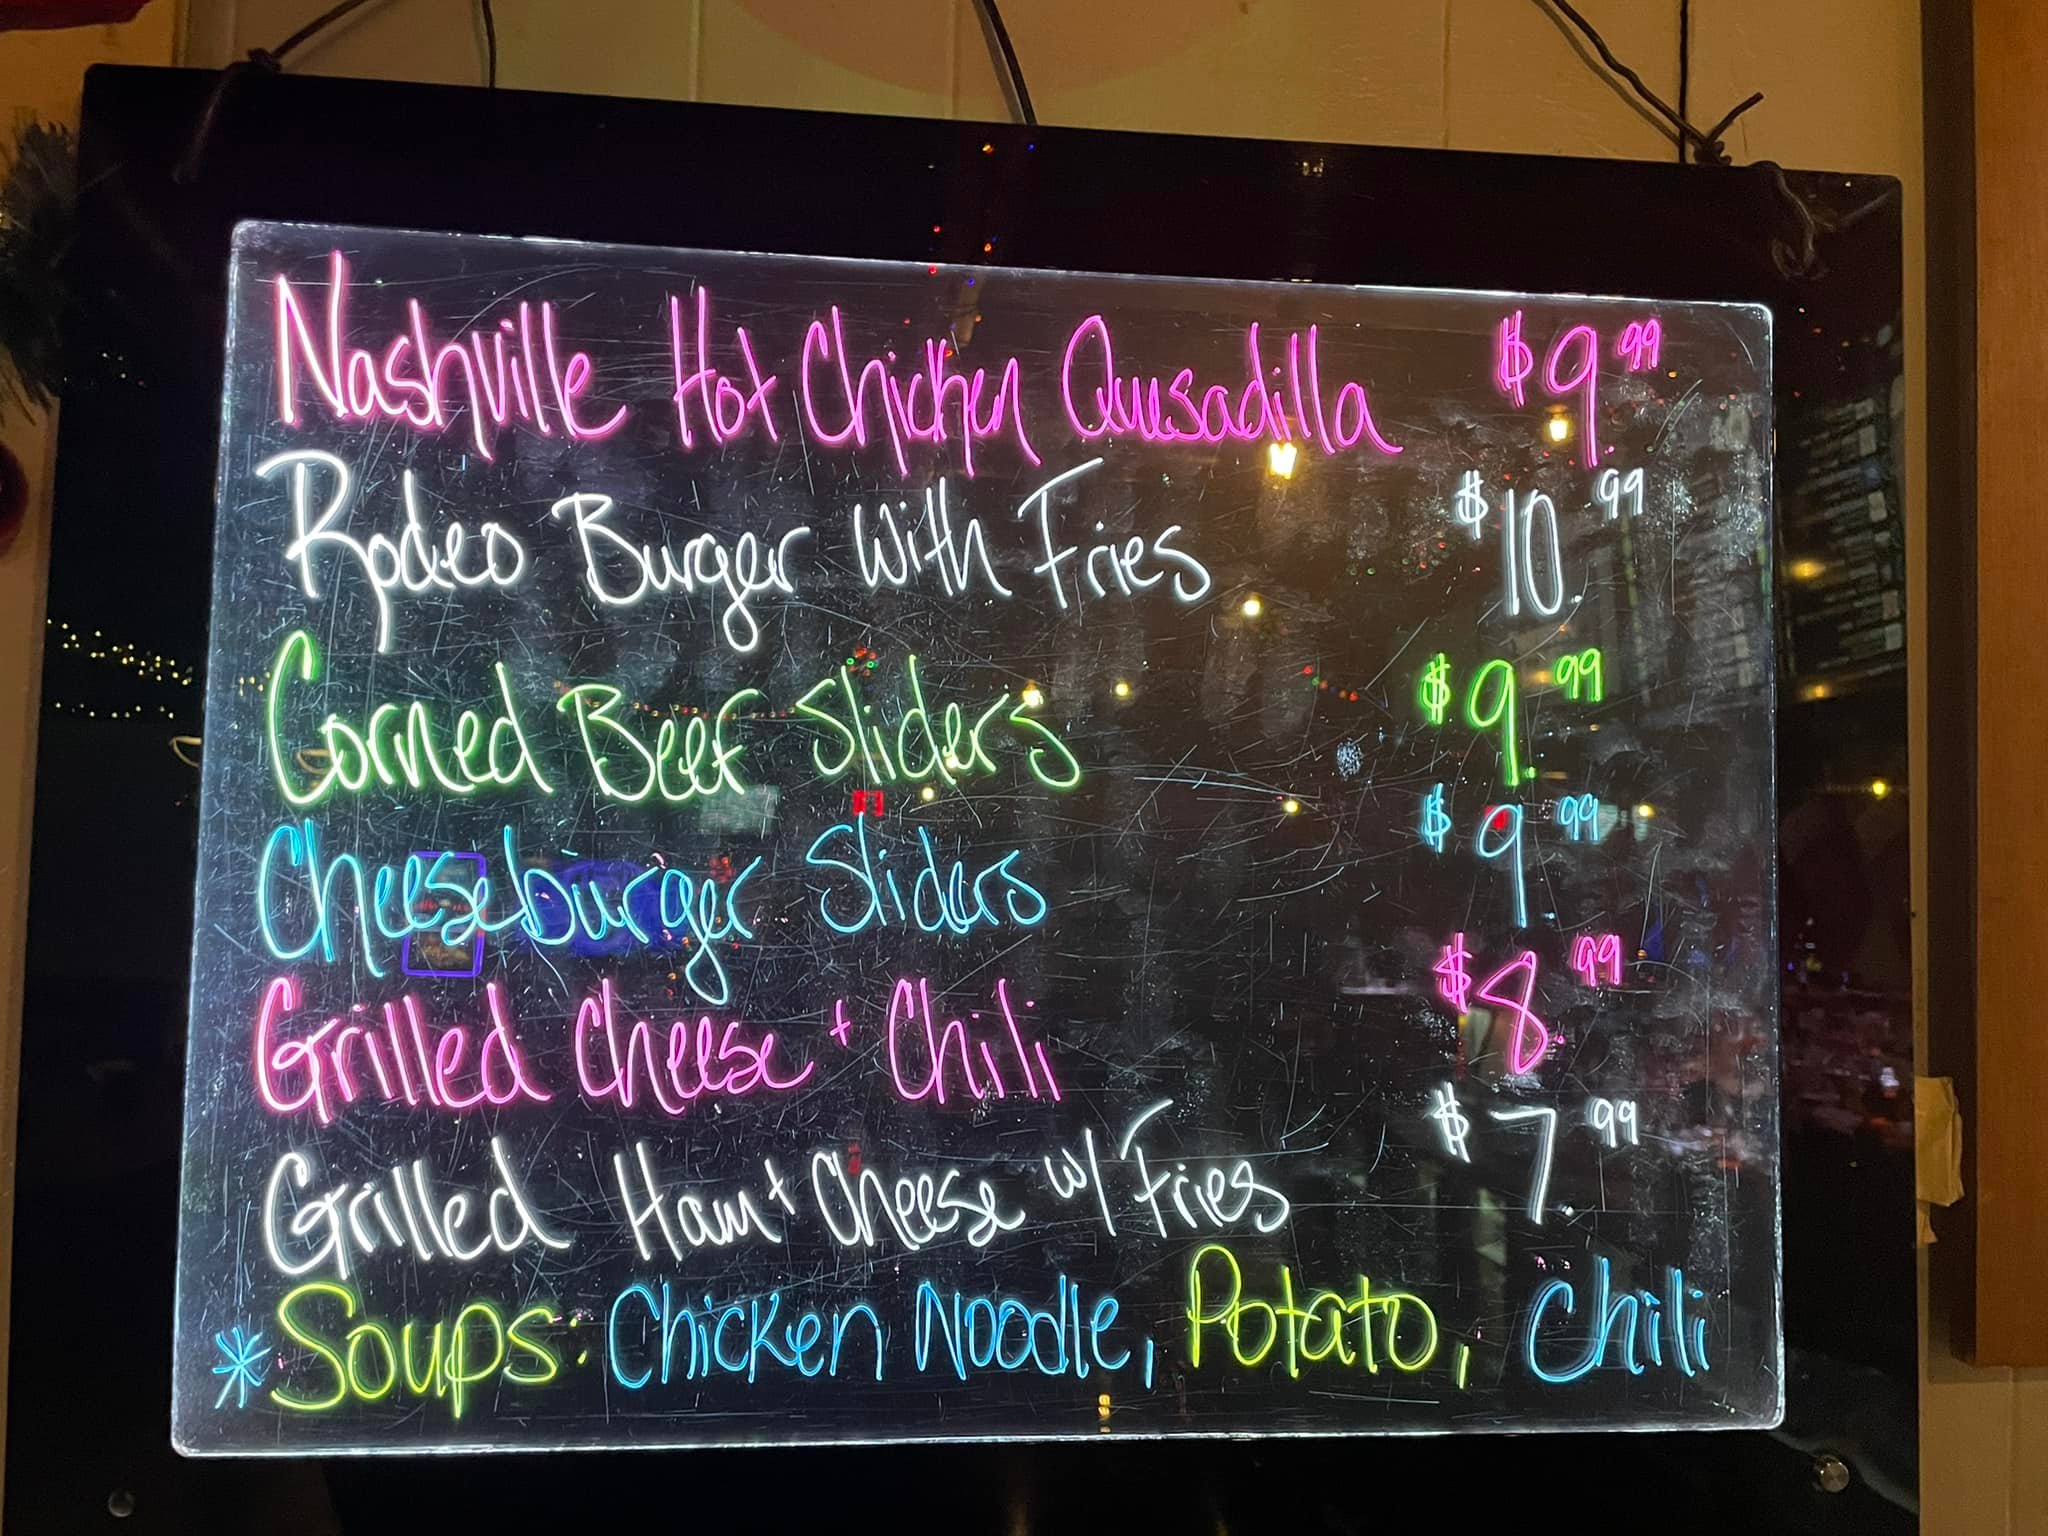 Nashville Hot Chicken Quesadilla $9.99
Rodeo Burger With Fries $10.99
Corned Beef Sliders $9.99
Cheeseburger Sliders $9.99
Grilled Cheese + Chili $8.99
Grilled Ham + Cheese w/ Fries $7.99
*Soups: Chicken Noodle, Potato, Chili